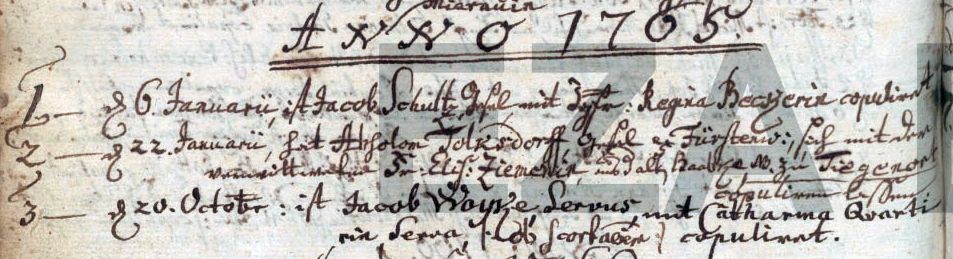 ANNO 1765.
1 — d 6. Januarii, ist Jacob Schultz, Gesel mit Jgfr: Regina Beczerin copuliret
2 — d 22. Januarii, hat Absolom Tolksdorff Gesel Fürstenw:, sich mit der
verwittweten Fr: Elis: Ziemenin, zu Tiegenort
copuliren lassen
3 — d 20. Octobr: ist Jacob Woyke, Servus, mit Catharina Quarti
rin Serva, (ob scortaõem) copuliret.